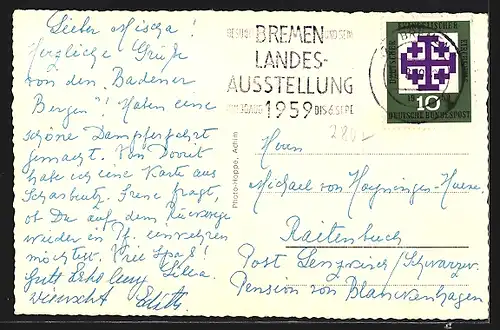 Lieber Mischa!
Herzliche Grüße
von den "Badener
Bergen"! Haben eine
schöne Dampferfahrt
gemacht. Von Dorrit
habe ich eine Karte aus
Scharbeutz. Irene fragt,
ob Du auf dem Rückwege
wieder in H. einkehren
möchtest. Viel Spaß!
Gute Erholung
wünscht Edith
BESUCHT BREMEN UND SEINE
LANDES-
AUSSTELLUNG
1959 BIS 6. SEPT.
EVANGELISCHER
10
DEUTSCHE BUNDESPOST
Photo-Hoppe, Achim
Herrn
Michael von Hoyningen-Huene
Raitenbuch
Post Lenzkirch/Schwarzw.
Pension von Blanckenhagen